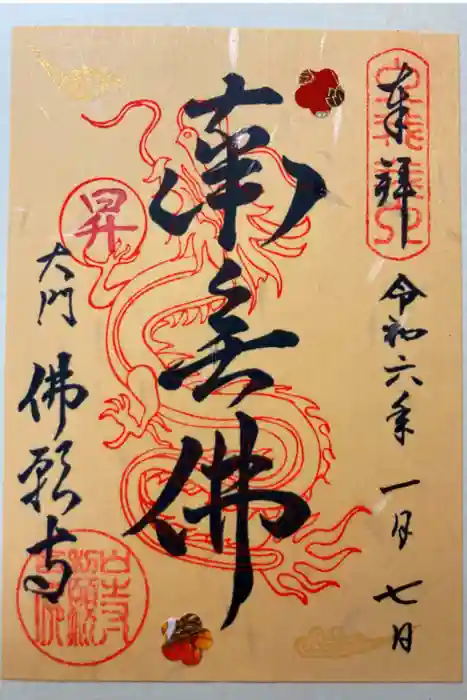 奉拝
令和六年一月七日
南無佛
昇
大門
佛願寺